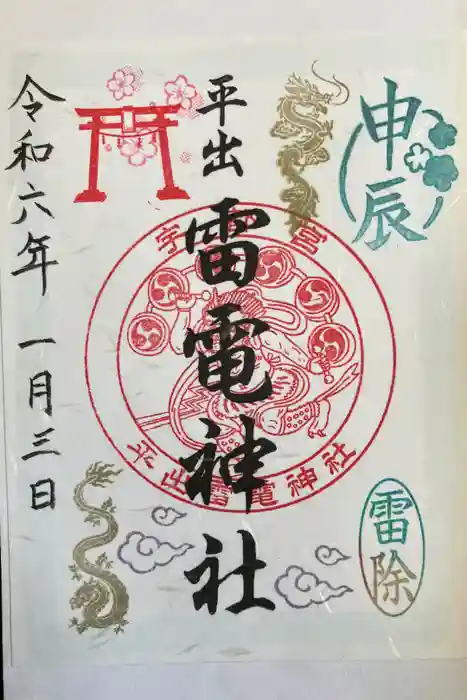 申辰
平出
雷電神社
令和六年 一月三日
宇都宮
平出雷電神社
雷除